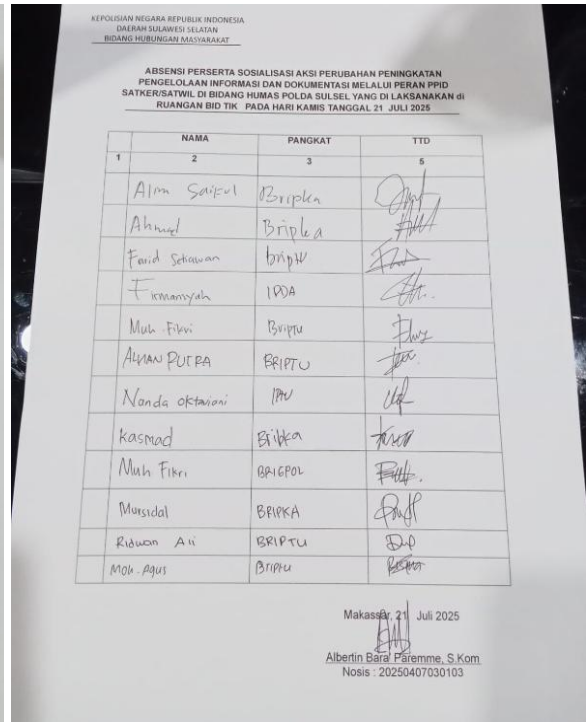 KEPOLISIAN NEGARA REPUBLIK INDONESIA
DAERAH SULAWESI SELATAN
BIDANG HUBUNGAN MASYARAKAT
ABSENSI PERSERTA SOSIALISASI AKSI PERUBAHAN PENINGKATAN
PENGELOLAAN INFORMASI DAN DOKUMENTASI MELALUI PERAN PPID
SATKER/SATWIL DI BIDANG HUMAS POLDA SULSEL YANG DI LAKSANAKAN di
RUANGAN BID TIK PADA HARI KAMIS TANGGAL 21 JULI 2025
NAMA PANGKAT TTD
1 2 3 5
Saiful Bripka
Ahmad Bripka
Farid Setiawan briptu
Firmansyah IPDA
Muh. Fikri Briptu
PUTRA BRIPTU
Nanda Oktaviani
Kasmad Bribka
Muh Fikri BRIGPOL
Mursidal BRIPKA
Ridwan Ali BRIPTU
Moh. Agus Briptu
Makassar, 21 Juli 2025
Albertin Bara' Paremme, S.Kom
Nosis : 20250407030103